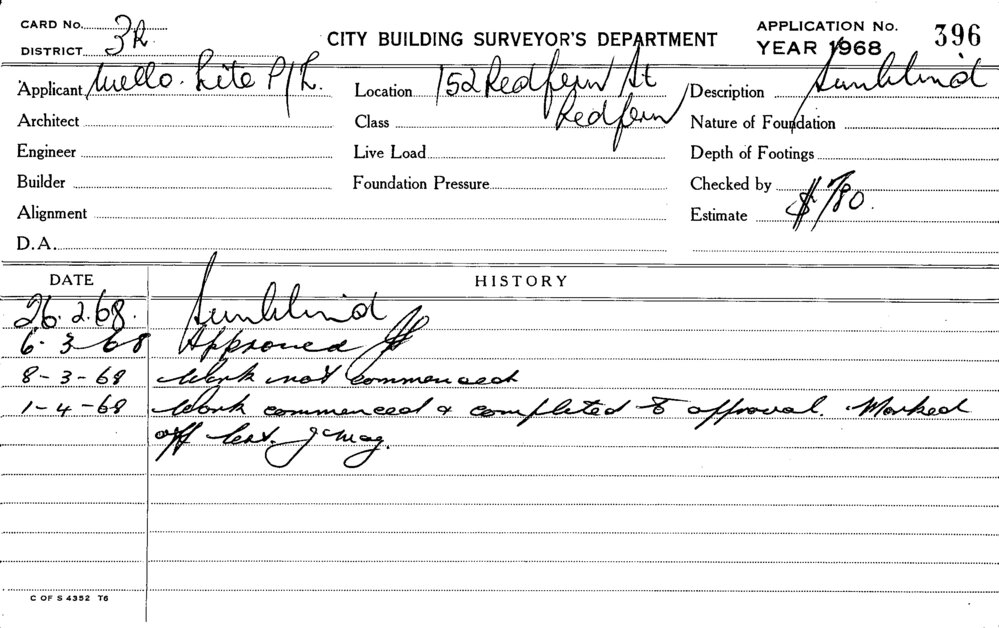 CARD No.
DISTRICT 3R.
CITY BUILDING SURVEYOR'S DEPARTMENT
APPLICATION No. 396
YEAR 1968
Applicant Luello. Lite P/L.
Location 152 Redfern St
Redfern
Description Sunblind
Architect
Class
Nature of Foundation
Engineer
Live Load
Depth of Footings
Builder
Foundation Pressure
Checked by
Alignment
Estimate $780.
D.A.
DATE HISTORY
26.2.68. Sunblind
6.3.68 Approved
8-3-68 Work not commenced
1-4-68 Work commenced & completed to approval. Marked
off
C OF S 4352 T6